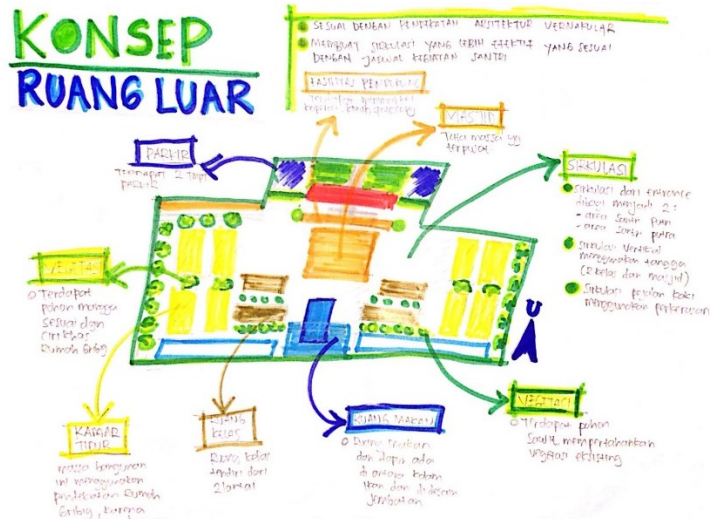 KONSEP
RUANG LUAR
SESUAI DENGAN PENDEKATAN ARSITEKTUR VERNAKULAR
MEMBUAT SIRKULASI YANG LEBIH EFEKTIF YANG SESUAI
DENGAN JADWAL KEGIATAN SANTRI
FASILITAS PENDUKUNG
MASJID
Tata massa yg
terpusat
PARKIR
Terdapat 2 
PARKIR
SIRKULASI
Sirkulasi dari entrance
dibagi menjadi 2:
- area santri putri
- area santri putra
Sirkulasi vertikal
menggunakan tangga
(R. kelas dan masjid)
Sirkulasi pejalan kaki
menggunakan perkerasan
VEGETASI
Terdapat
pohon mangga
sesuai dgn
ciri khas
Rumah Gribig
U
KAMAR
TIDUR
massa bangunan
ini menggunakan
pendekatan Rumah
Gribig, karena
RUANG
KELAS
Ruang kelas
terdiri dari
2 lantai
RUANG MAKAN
Ruang makan
dan dapur ada
di antara kolam
ikan dan di desain
jembatan
VEGETASI
Terdapat pohon
mempertahankan
vegetasi eksisting